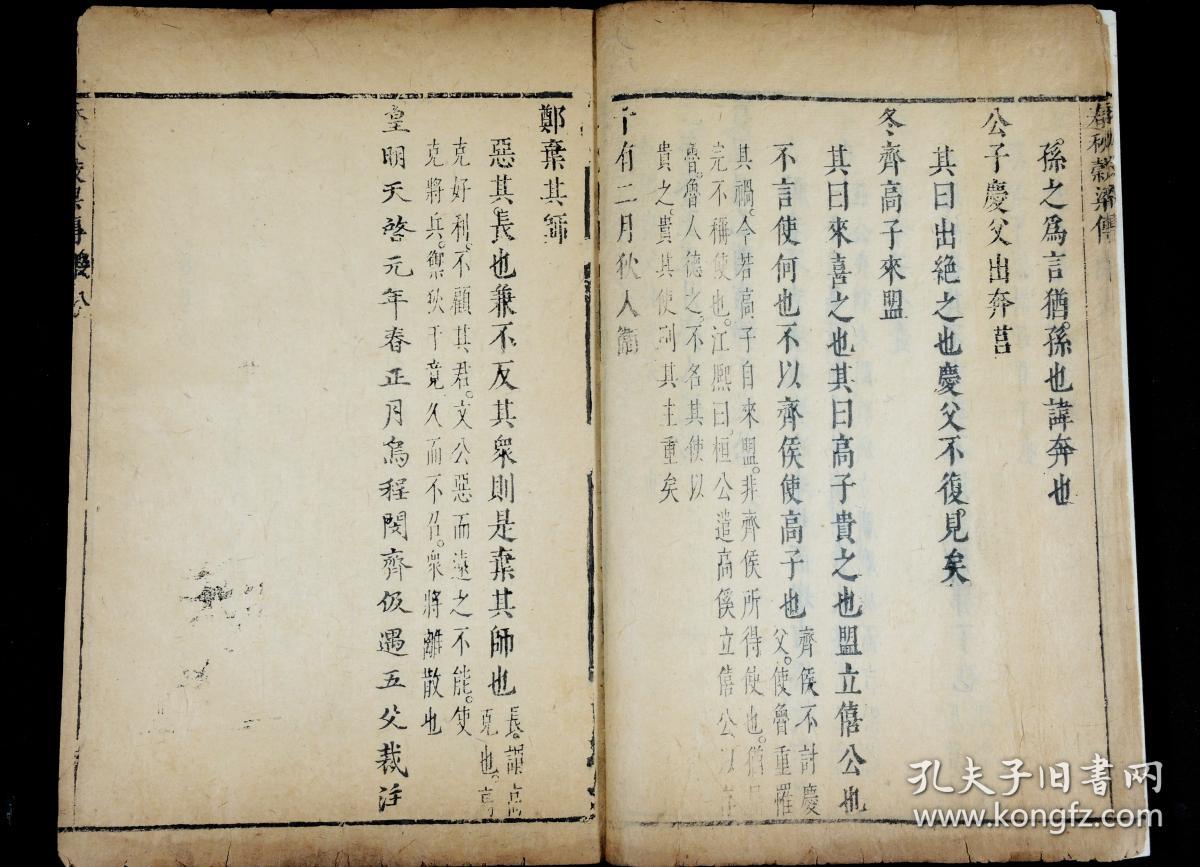 春秋穀梁傳
孫之爲言猶孫也諱奔也
公子慶父出奔莒
其曰出絶之也慶父不復見矣
冬齊高子來盟
其曰來喜之也其曰高子貴之也盟立僖公也
不言使何也不以齊侯使高子也
齊侯不討慶
父使魯重罹
其禍今若高子自來盟非齊侯所得使也猶屈
完不稱使也江熙曰桓公遣高傒立僖公以存
魯魯人德之不名其使以
貴之貴其使則其主重矣
十有二月狄入衞
鄭棄其師
惡其長也兼不反其衆則是棄其師也
長謂高
克也高
克好利不顧其君文公惡而遠之不能使
克將兵禦狄于竟久而不召衆將離散也
皇明天啓元年春正月烏程閔齊伋遇五父裁注
孔夫子旧书网
www.kongfz.com